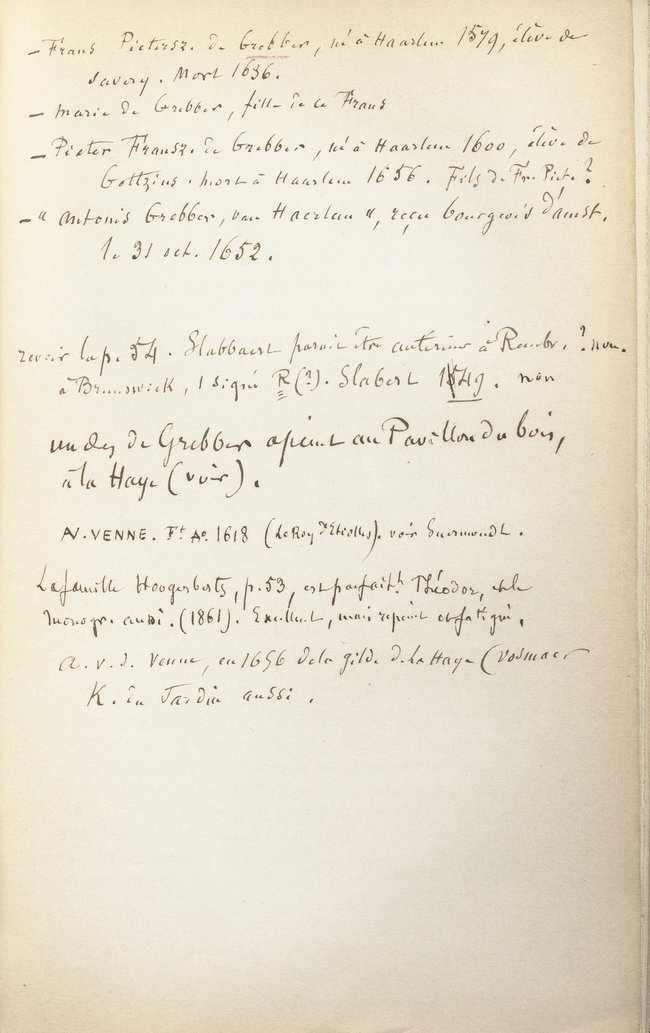 – Frans Pietersz. de Grebber, né à Haarlem 1579, élève de
Savery. Mort 1636.
– Marie de Grebber, fille de ce Frans
– Pieter Fransz. de Grebber, né à Haarlem 1600, élève de
Goltzius. mort à Haarlem 1656. Fils de Fr. Piet.?
– " Antonis Grebber, van Haerlem ", reçu bourgeois d'Amst.
le 31 oct. 1652.
revoir la p. 54. Slabbaert parait être antérieur à Rembr. ? non.
à Brunswick, 1 signé R (?). Slabert 1549. non
un des de Grebber a peint au Pavillon du bois,
à la Haye (voir).
AV. VENNE. Ft Ao. 1618 (LeRoy d'Etiolles). voir Suermondt.
La famille Hoogerbeets, p. 53, est parfaitt. Théodor, et le
monogr. aussi. (1861). Excellent, mais repeint et fatigué.
A. v. d. Venne, en 1656 de la gilde de La Haye (Vosmaer
K. du Jardin aussi.